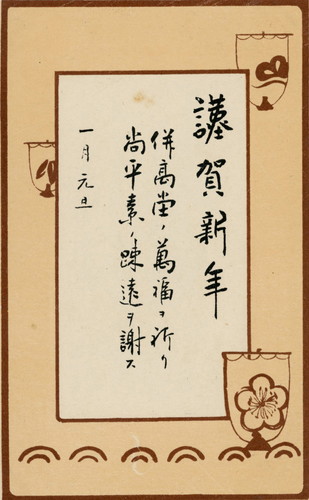 謹賀新年
併高堂ノ萬福ヲ祈リ
尚平素ノ疎遠ヲ謝ス
一月元旦